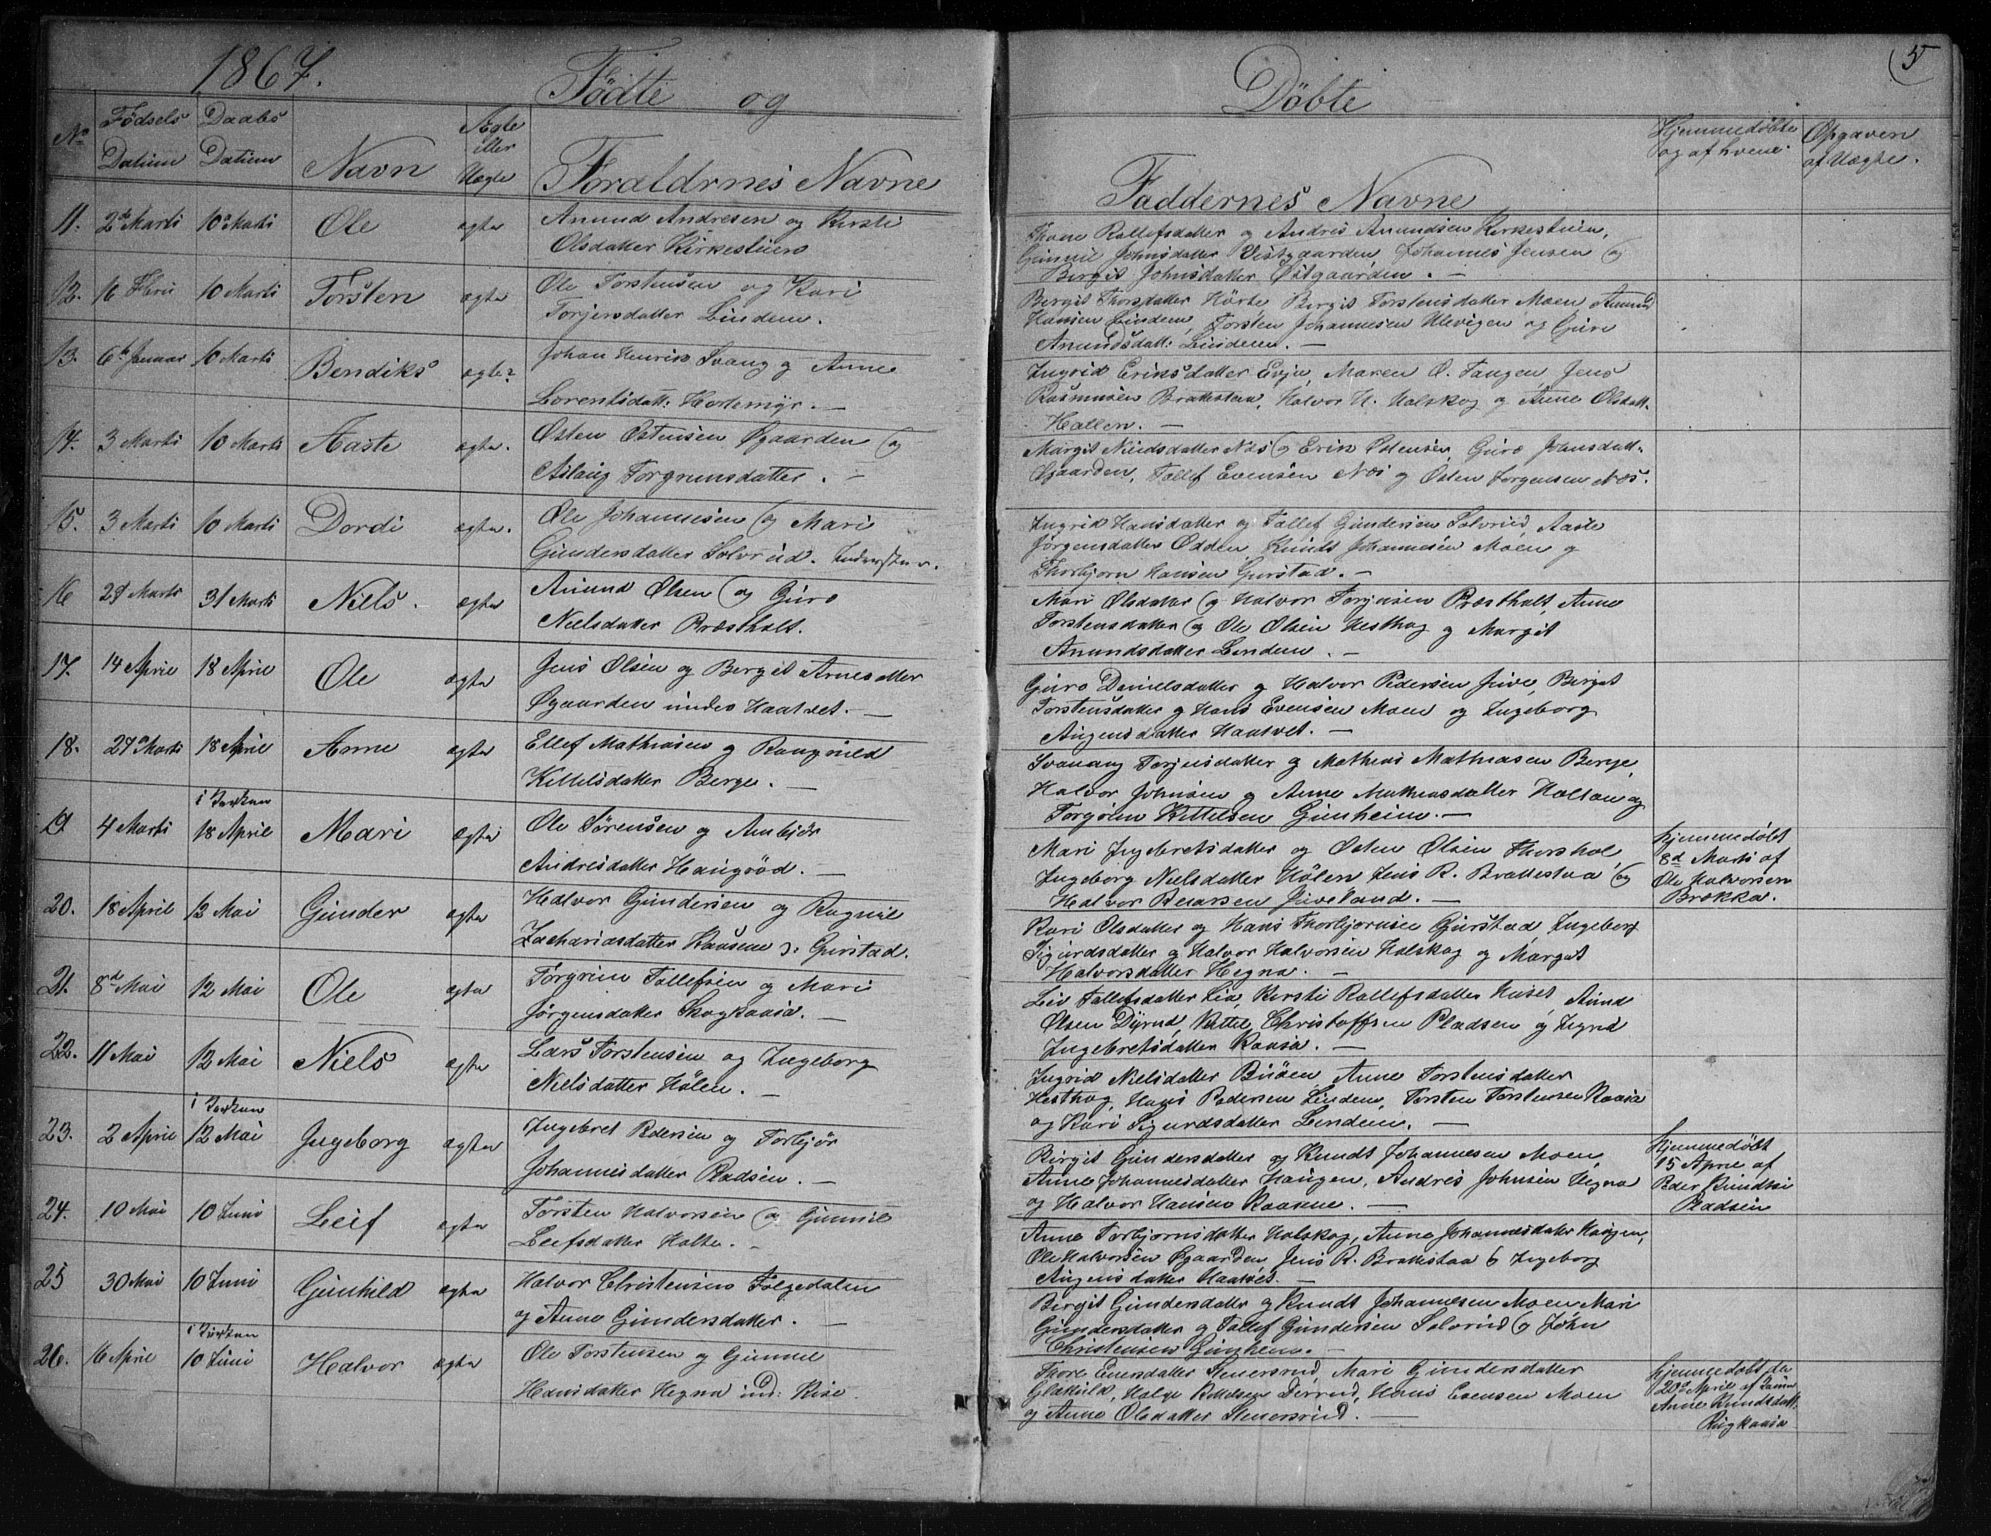 1867.
Fødte og
Døbte
5
No
Fødsels Datum
Daabs Datum
Navn
Ægte eller Uægte
Forældrnes Navne
Faddernes Navne
Hjemmedøbte og af hvem.
Opgaven af Uægte.
11. 2d Marti 10d Marti Ole ægte Anund Andresen og Kirsti
Olsdatter Kirkestuen
Thone Rollefsdatter og Andris Anundsen Kirkestuen,
Gunnil Johnsdatter Vestgaarden Johannes Jensen og
Bergit Johnsdatter Østgaarden. —
12. 16 Febru 10 Marti Torsten ægte Ole Torstensen og Kari
Torjersdatter Lindem.
Bergit Thorsdatter Hörte, Bergit Torstensdatter Moen Anund
Hansen Lindem, Torsten Johannesen Ulevigen og Guro
Anundsdatt: Linderen. —
13. 6d Januar 10 Marti Bendiks ægte Johan Henrik Svang og Anne
Lorentsdatt: Hortemyr. —
Ingrid Eriksdatter Evju, Maren O. Tangen, Jens
Rasmusen Brattestaa, Halvor H. Halskog og Anne Olsdatt.
Hallen. —
14. 3 Marti 10 Marti Aaste ægte. Østen Østensen Øgaarden og
Aslaug Torgrimsdatter. —
Margit Niridsdatter Næs og Erik Østensen, Guro Jonsdatt.
Øgaarden, Tollef Evensen Næs og Østen Jørgensen Næs.
15. 3 Marti 10 Marti Dordi ægte. Ole Johannesen og Mari
Gundersdatter Solvrud.
Ingrid Hansdatter og Tollef Gundersen Solvrud, Aaste
Jørgensdatter Odden, Knudt Johannesen Moen og
Thorbjørn Hansen Gurstad. —
16 29 Marti 31 Marti Niels. ægte Anund Olsen og Guro
Nielsdatter Præstholt.
Mari Olsdatter og Halvor Torjusen Præstholt, Anne
Torstensdatter og Ole Olsen Hesthag og Margit
Anundsdatter Lindem. —
17. 14 April 18 April Ole ægte Jens Olsen og Bergit Arnesdatter
Øgaarden under Haatvet. —
Guro Danielsdatter og Halvor Pedersen Juve, Birgit
Torstensdatter og Hans Evensen Moen og Ingeborg
Augensdatter Haatvet. —
18. 27 Marti 18 April Anne ægte Ellef Mathiasen og Raugnild
Kittelsdatter Berge. —
Svanaug Torjusdatter og Mathias Mathiasen Berge,
Halvor Johnsen og Anne Mathiasdatter Holtan og
Torgrim Kittelsen Gunheim. —
19 4 Marti i Kirken 18 April Mari ægte Ole Sørensen og Anbjør
Andresdatter Haugrød. —
Mari Ingebretsdatter og Østen Olsen Thorshol,
Ingeborg Nielsdatter Hølen, Jens R. Brattestaa, og
Halvor Juveland. —
Hjemmedøbt
8d Marti af
Ole Halvorsen
Brokka.
20. 18 April 12 Mai Gunder ægte Halvor Gundersen og Ragnil
Zachariasdatter Gurstad.
Kari Olsdatter og Hans Thorbjørnsen Gurstad, Ingeborg
Sigurdsdatter og Halvor Halvorsen Halskog og Margit
Halvorsdatter Hegna. —
21. 8d Mai 12 Mai Ole ægte Torgrim Tollefsen og Mari
Jørgensdatter Skogkaasa. —
Liv Tollefsdatter Lia, Kirsti Rollefsdatter Huset, Anund
Olsen Dyrud, Kittel Christoffsen Pladsen og Ingrid
Ingebretsdatter Kaasa. —
22. 11 Mai 12 Mai Niels ægte Lars Torstensen og Ingeborg
Nielsdatter Hølen. —
Ingrid Nielsdatter Buøen, Anne Torstensdatter
Hesthag, Hans Pedersen Lindem, Torsten Torstensen Kaasa
og Kari Sigurdsdatter Lindem. —
23. 2 April i Kirken 12 Mai Ingeborg ægte Ingebret Pedersen og Torbjør
Johannesdatter Pladsen. —
Birgit Gundersdatter og Knudt Johannesen Moen,
Anne Johannesdatter Haugen, Andres Johnsen Hegna
og Halvor Hansen Kaasene. —
Hjemmedøbt
15 April af
Peder Knudtsen
Pladsen
24. 10 Mai 10 Juni Leif ægte Torsten Halvorsen og Gunnil
Leifsdatter Holte. —
Anne Torbjørnsdatter Halskog, Anne Johannesdatter Haugen,
Ole Halvorsen Øgaarden, Jens R. Brattestaa & Ingeborg
Augensdatter Haatvet. —
25 30 Mai 10 Juni Gunhild ægte Halvor Christensen Følgedalen
og Anne Gundersdatter. —
Birgit Gundersdatter og Knudt Johannesen Moen, Mari
Gundersdatter og Tollef Gundersen Solvrud og John
Christensen Gunheim. —
26. 16 April i Kirken 10 Juni Halvor ægte Ole Torstensen og Gunnil
Hansdatter Hegna und: Rise.
Thore Evensdatter Stenersrud, Mari Gundersdatter
Helge Kittelsen Hans Evensen Moen
og Anne Olsdatter Stenersrud. —
Hjemmedøbt den
20d April af
Anne Knudsdatt.